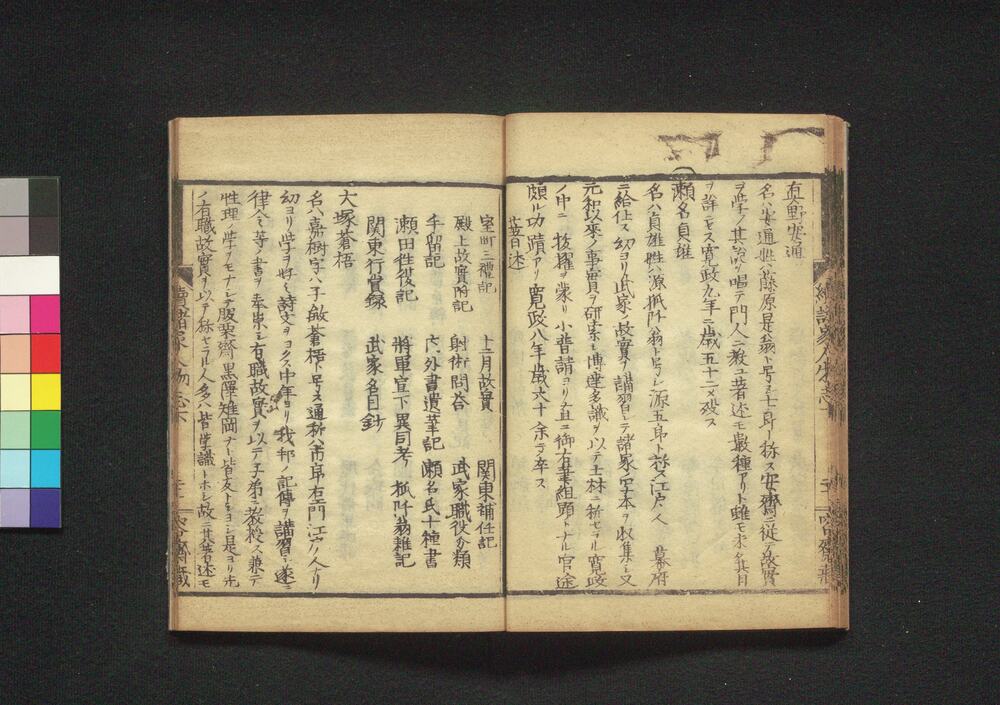 直野安通
名ハ安通姓ハ藤原是翁ト号シ七郎ト称ス安齋ニ従テ故實
ヲ学ノ其説ヲ唱テ門人ニ教ユ著述モ數種アリト雖モ未タ其目
ヲ詳ニセス寛政九年二歳五十二ニ殁ス
瀬名貞雄
名ハ貞雄姓ハ源狐阡翁ト号シ源五郎ト称ス江戸ノ人 幕府
ニ給仕ス幼ヨリ武家ノ故實ヲ講習シテ諸家ノ写本ヲ収集シ又
元和以来ノ事實ヲ研索シ博達多識ヲ以テ士林ニ称セラル寛政
ノ中ニ抜擢ヲ蒙リ小普請ヨリ直ニ御右筆組頭トナル官途
頗ル功蹟アリ寛政八年歳六十余ニテ卒ス
著述
室町三禮記 十二月故實 関東補任記
殿上故實附記 射術問答 武家職役分類
手留記 六外書遺筆記 瀬名氏十種書
瀬田往復記 將軍宣下異同考 狐阡翁雜記
関東行賞録 武家名目鈔
大塚蒼梧
名ハ嘉樹字ハ子敏蒼梧ト号ス通称ハ市郎右エ門江戸ノ人ナリ
幼ヨリ学ヲ好ミ詩文ヲヨクス中年ヨリ我邦ノ記傳ヲ講習シ遂ニ
律令等ノ書ヲ奉崇シ有職故實ヲ以テ子弟ニ教授ス兼テ
性理ノ学ヲモナシテ服栗齋黒澤雉岡ナト皆友トシヨシ是ヨリ先
ノ有職故實ヲ以テ称セラル人多ハ皆学識トホシ故ニ其著述モ
續諸家人物志下